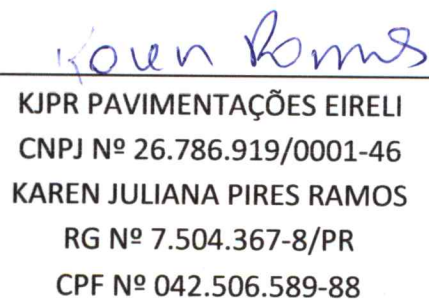 Karen Ramos
KJPR PAVIMENTAÇÕES EIRELI
CNPJ Nº 26.786.919/0001-46
KAREN JULIANA PIRES RAMOS
RG Nº 7.504.367-8/PR
CPF Nº 042.506.589-88